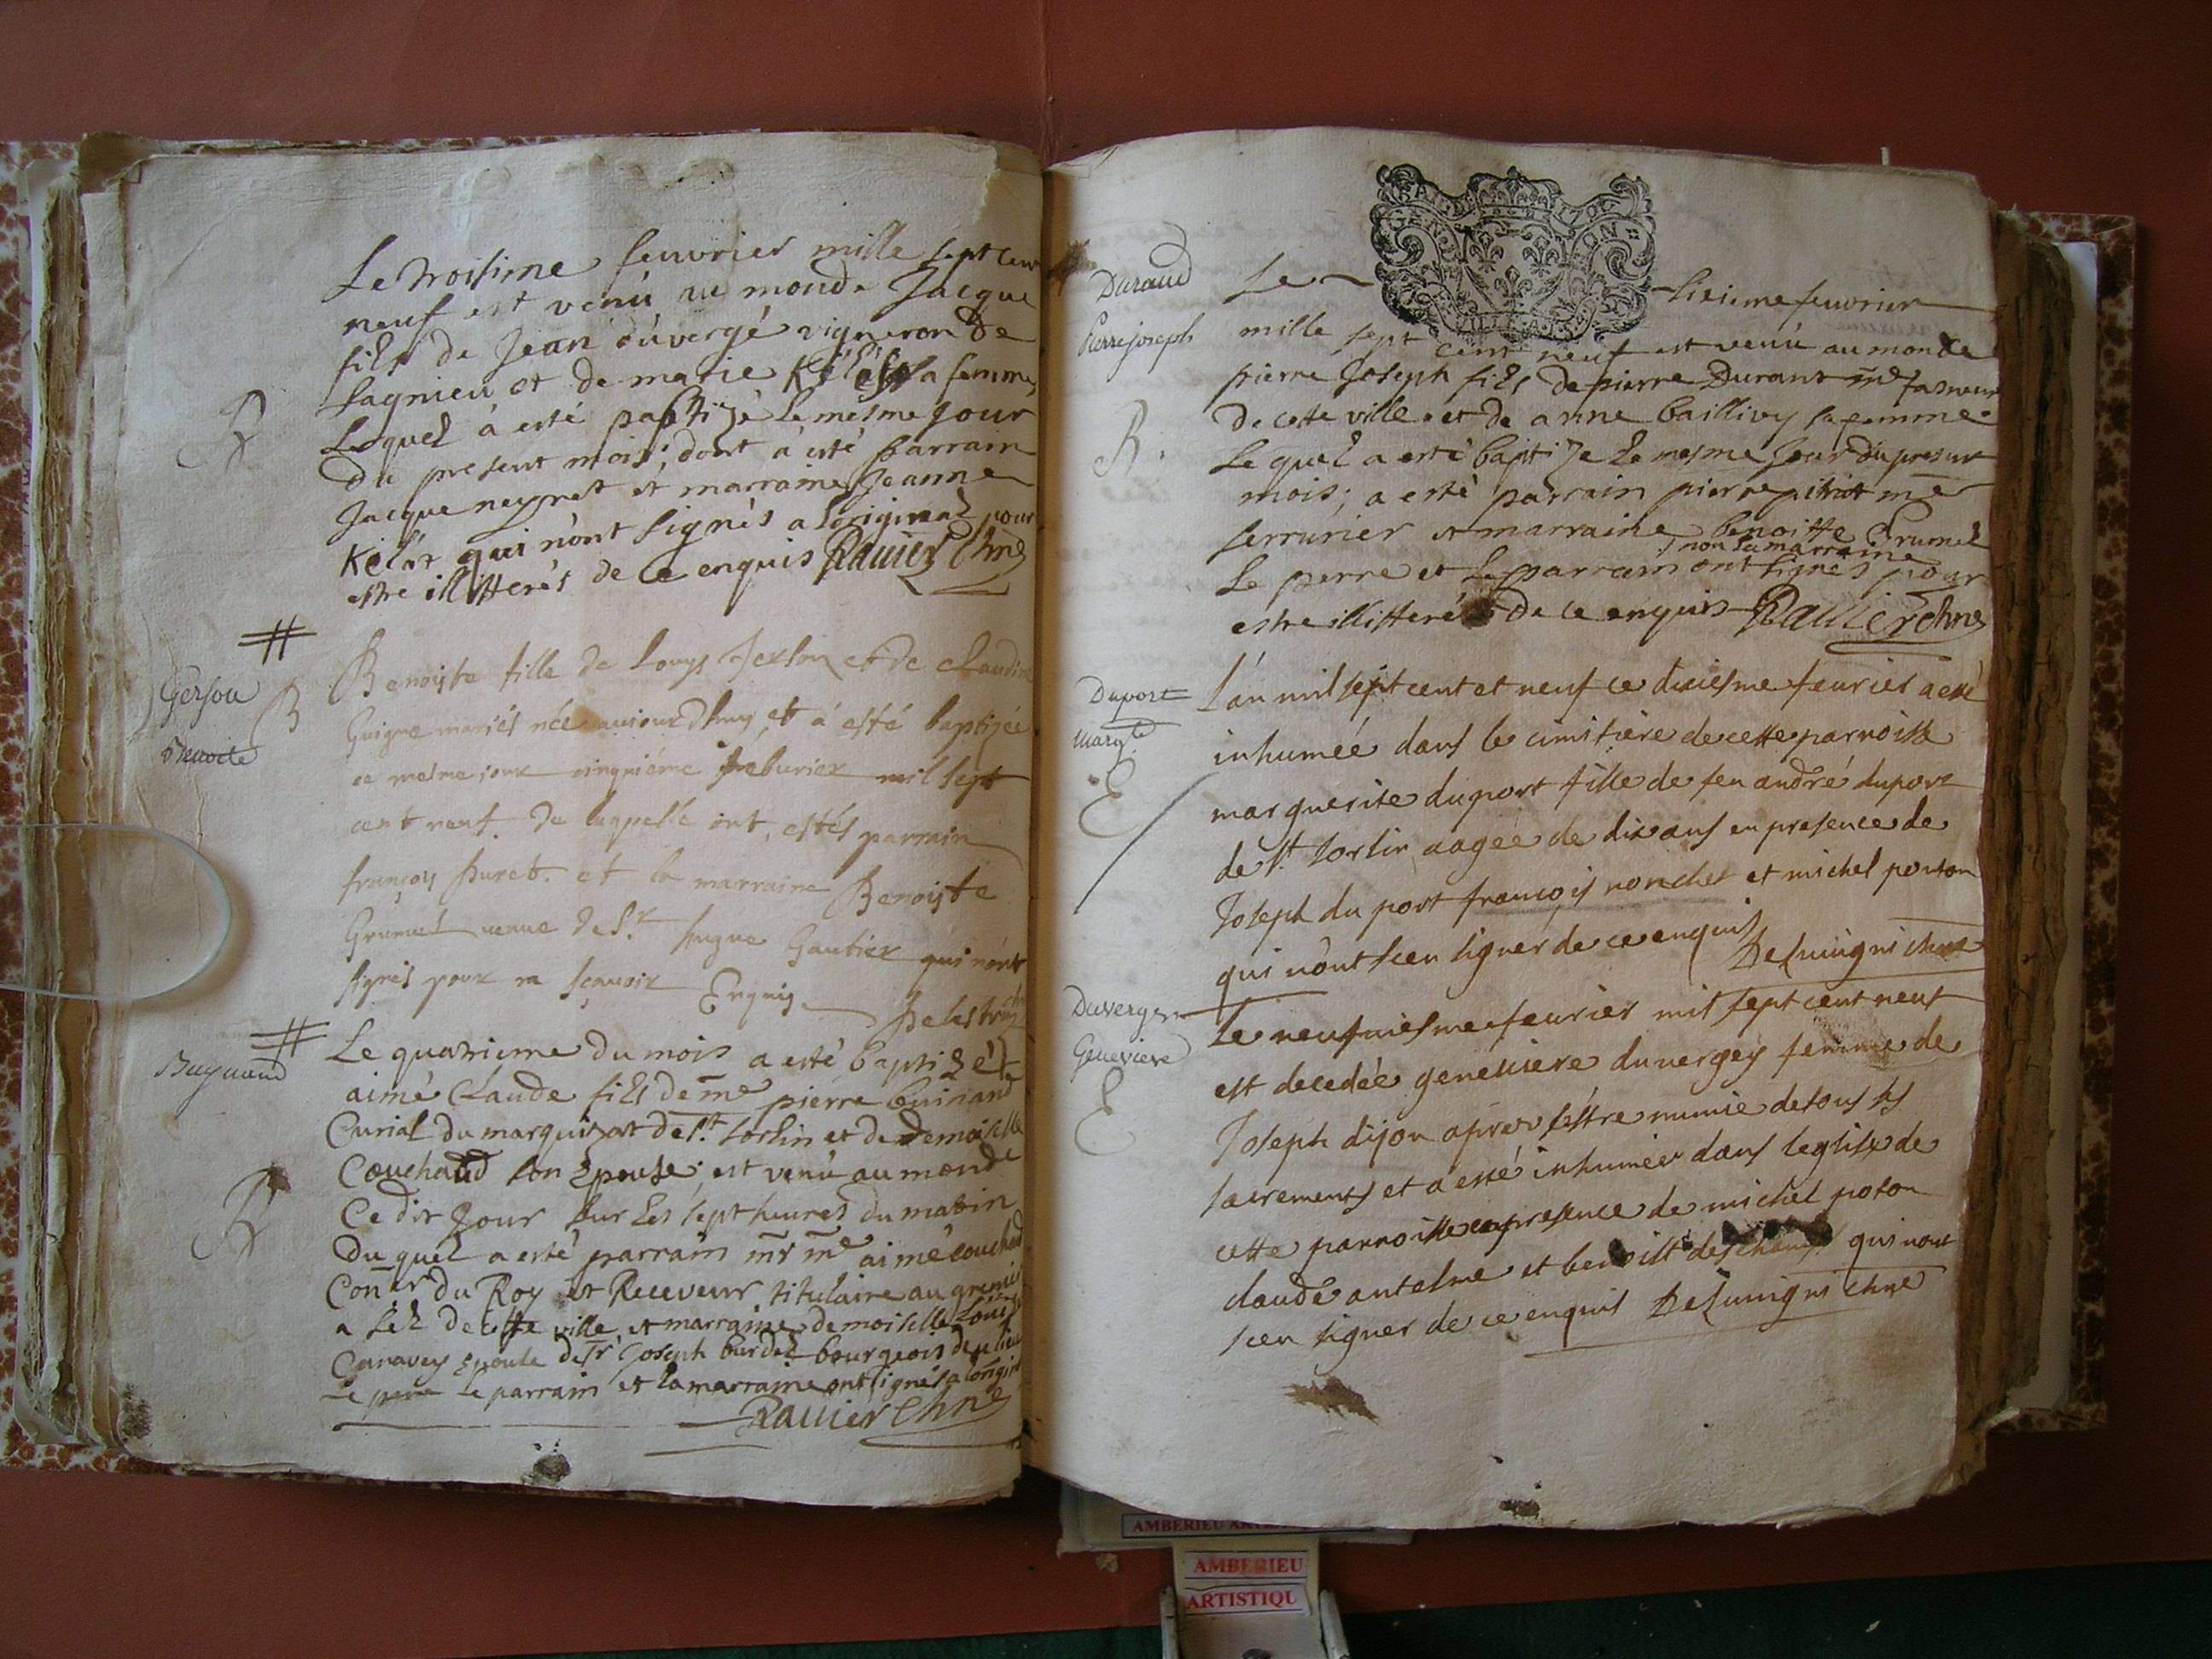 Le troisime feuvrier mille sept cens
neuf est venú au monde Jacque
fils de Jean duvergé vigneron de
Lagnieu et de marie sa femme,
Lequel à esté paptizé le mesme Jour
du present mois; dont a esté parrain
Jacque neyret et marraine Jeanne
qui n'ont signés a Loriginal pour
estre illitterés de ce enquis Ravier Chne
Gersou
Benoite
B
Benoiste fille de Louys Jerson et de claudine
Guigne mariés née aujourdhuy et á esté baptizée
ce mesme jour cinquiéme feburier mil sept
cent neuf. de laquelle ont estés parrain
françois Puret. et la marraine Benoiste
Grumel veuve de Sr. hugue Gautier qui n'ont
signés pour ne sçavoir Enquis
Buynand
Le quatrieme du mois a esté baptizé
aimé Claude fils de me pierre buinand
Curial du marquizat de St. Sorlin et de Demoiselle
Couchaud son Epouse; est venú au monde
Ce dit Jour sur Les sept heures du matin
Du quel a esté parrain mr me aimé couchaud
Coner du Roy et Receveur titulaire au grenier
a sel de cette ville et marraine demoiselle Louise
Canavey Epouse de Sr Joseph burdel bourgeois
Le pere Le parrain et la marraine ont signés a Lorigin
Ravier Chne
GEN ON
Duraud
Pierre joseph
B.
Le sixieme feuvrier
mille sept cent neuf est venú au monde
pierre Joseph fils de pierre Durant me tasneur
de cette ville et de anne baillivy sa femme
Le quel a esté baptizé Le mesme Jour du present
mois; a esté parrain pierre me
serrurier et marraine benoitte Grumel
non la marraine
Le perre et Le parrain ont signés pour
estre illitteré de ce enquis Ravier Chne
Duport
Margte
E
L'an mil sept cent et neuf ce dixiesme feurier a esté
inhumeé dans le cimitiere de cette parroisse
marguerite duport fille de feu andré duport
de St. Sorlin aagée de dix ans en presence de
Joseph du port françois ronchet et michel pouson
qui n'ont sceu signer de ce enquis
Duverger
Genevieve
E
Le neufuiesme feurier mil sept cent neuf
est decedée genevieve duvergey femme de
Joseph dijon apres s'estre munie de tous ses
sacrements et a esté inhumée dans leglise de
cette parroisse en presence de michel poson
claude antelme et benoist deschamps qui n'ont
sceu signer de ce enquis
AMBERIEU
AMBERIEU
ARTISTIQU